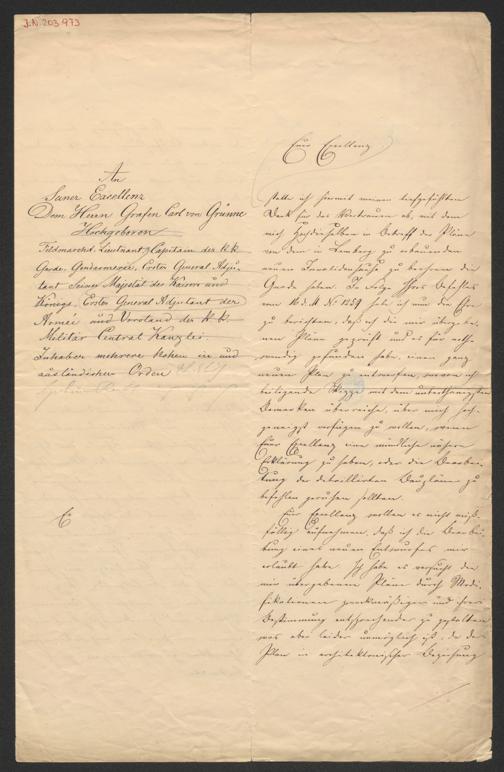 J.N. 203.973
An
Seiner Excellenz
Dem Herrn Grafen Carl von Grünne
Hochgeboren
Feldmarschl. Lieutnant, Capitain der k k
Garde-Gendarmerie, Erster General Adju-
tant Seiner Majestät des Kaisers und
Königs, Erster General Adjutant der
Armée und Vorstand der k. k.
Militär Central Kanzlei
Inhaber mehrere hohen in und
ausländischen Orden
Euer Excellenz
statte ich hiermit meinen tiefgefühlten
Dank für das Vertrauen ab, mit dem
mich Hochdieselben in Betreff der Pläne
von dem in Lemberg zu erbauenden
neuen Invalidenhause zu beehren die
Gnade haben. In Folge Ihres Befehles
vom 10 d. M. No 1259 habe ich nun die Ehre
zu berichten, daß ich die mir übergebe-
nen Pläne geprüft und es für noth-
wendig gefunden habe, einen ganz
neuen Plan zu entwerfen, wovon ich
beiliegende Skizze mit dem unterthänigsten
Bemerken überreiche, über mich hoch-
geneigtest verfügen zu wollen, wenn
Euer Excellenz eine mündliche nähere
Erklärung zu haben, oder die Bearbei-
tung der detaillirten Baupläne zu
befehlen geruhen sollten.
Euer Excellenz wollen es nicht miß-
fällig aufnehmen, daß ich die Bearbei-
tung eines neuen Entwurfes mir
erlaubt habe. Ich habe es versucht den
mir übergebenen Pläne durch Modi-
fikationen zweckmäßiger und ihrer
Bestimmung entsprechender zu gestalten
was aber leider unmöglich ist, da der
Plan in architektonischer Beziehung